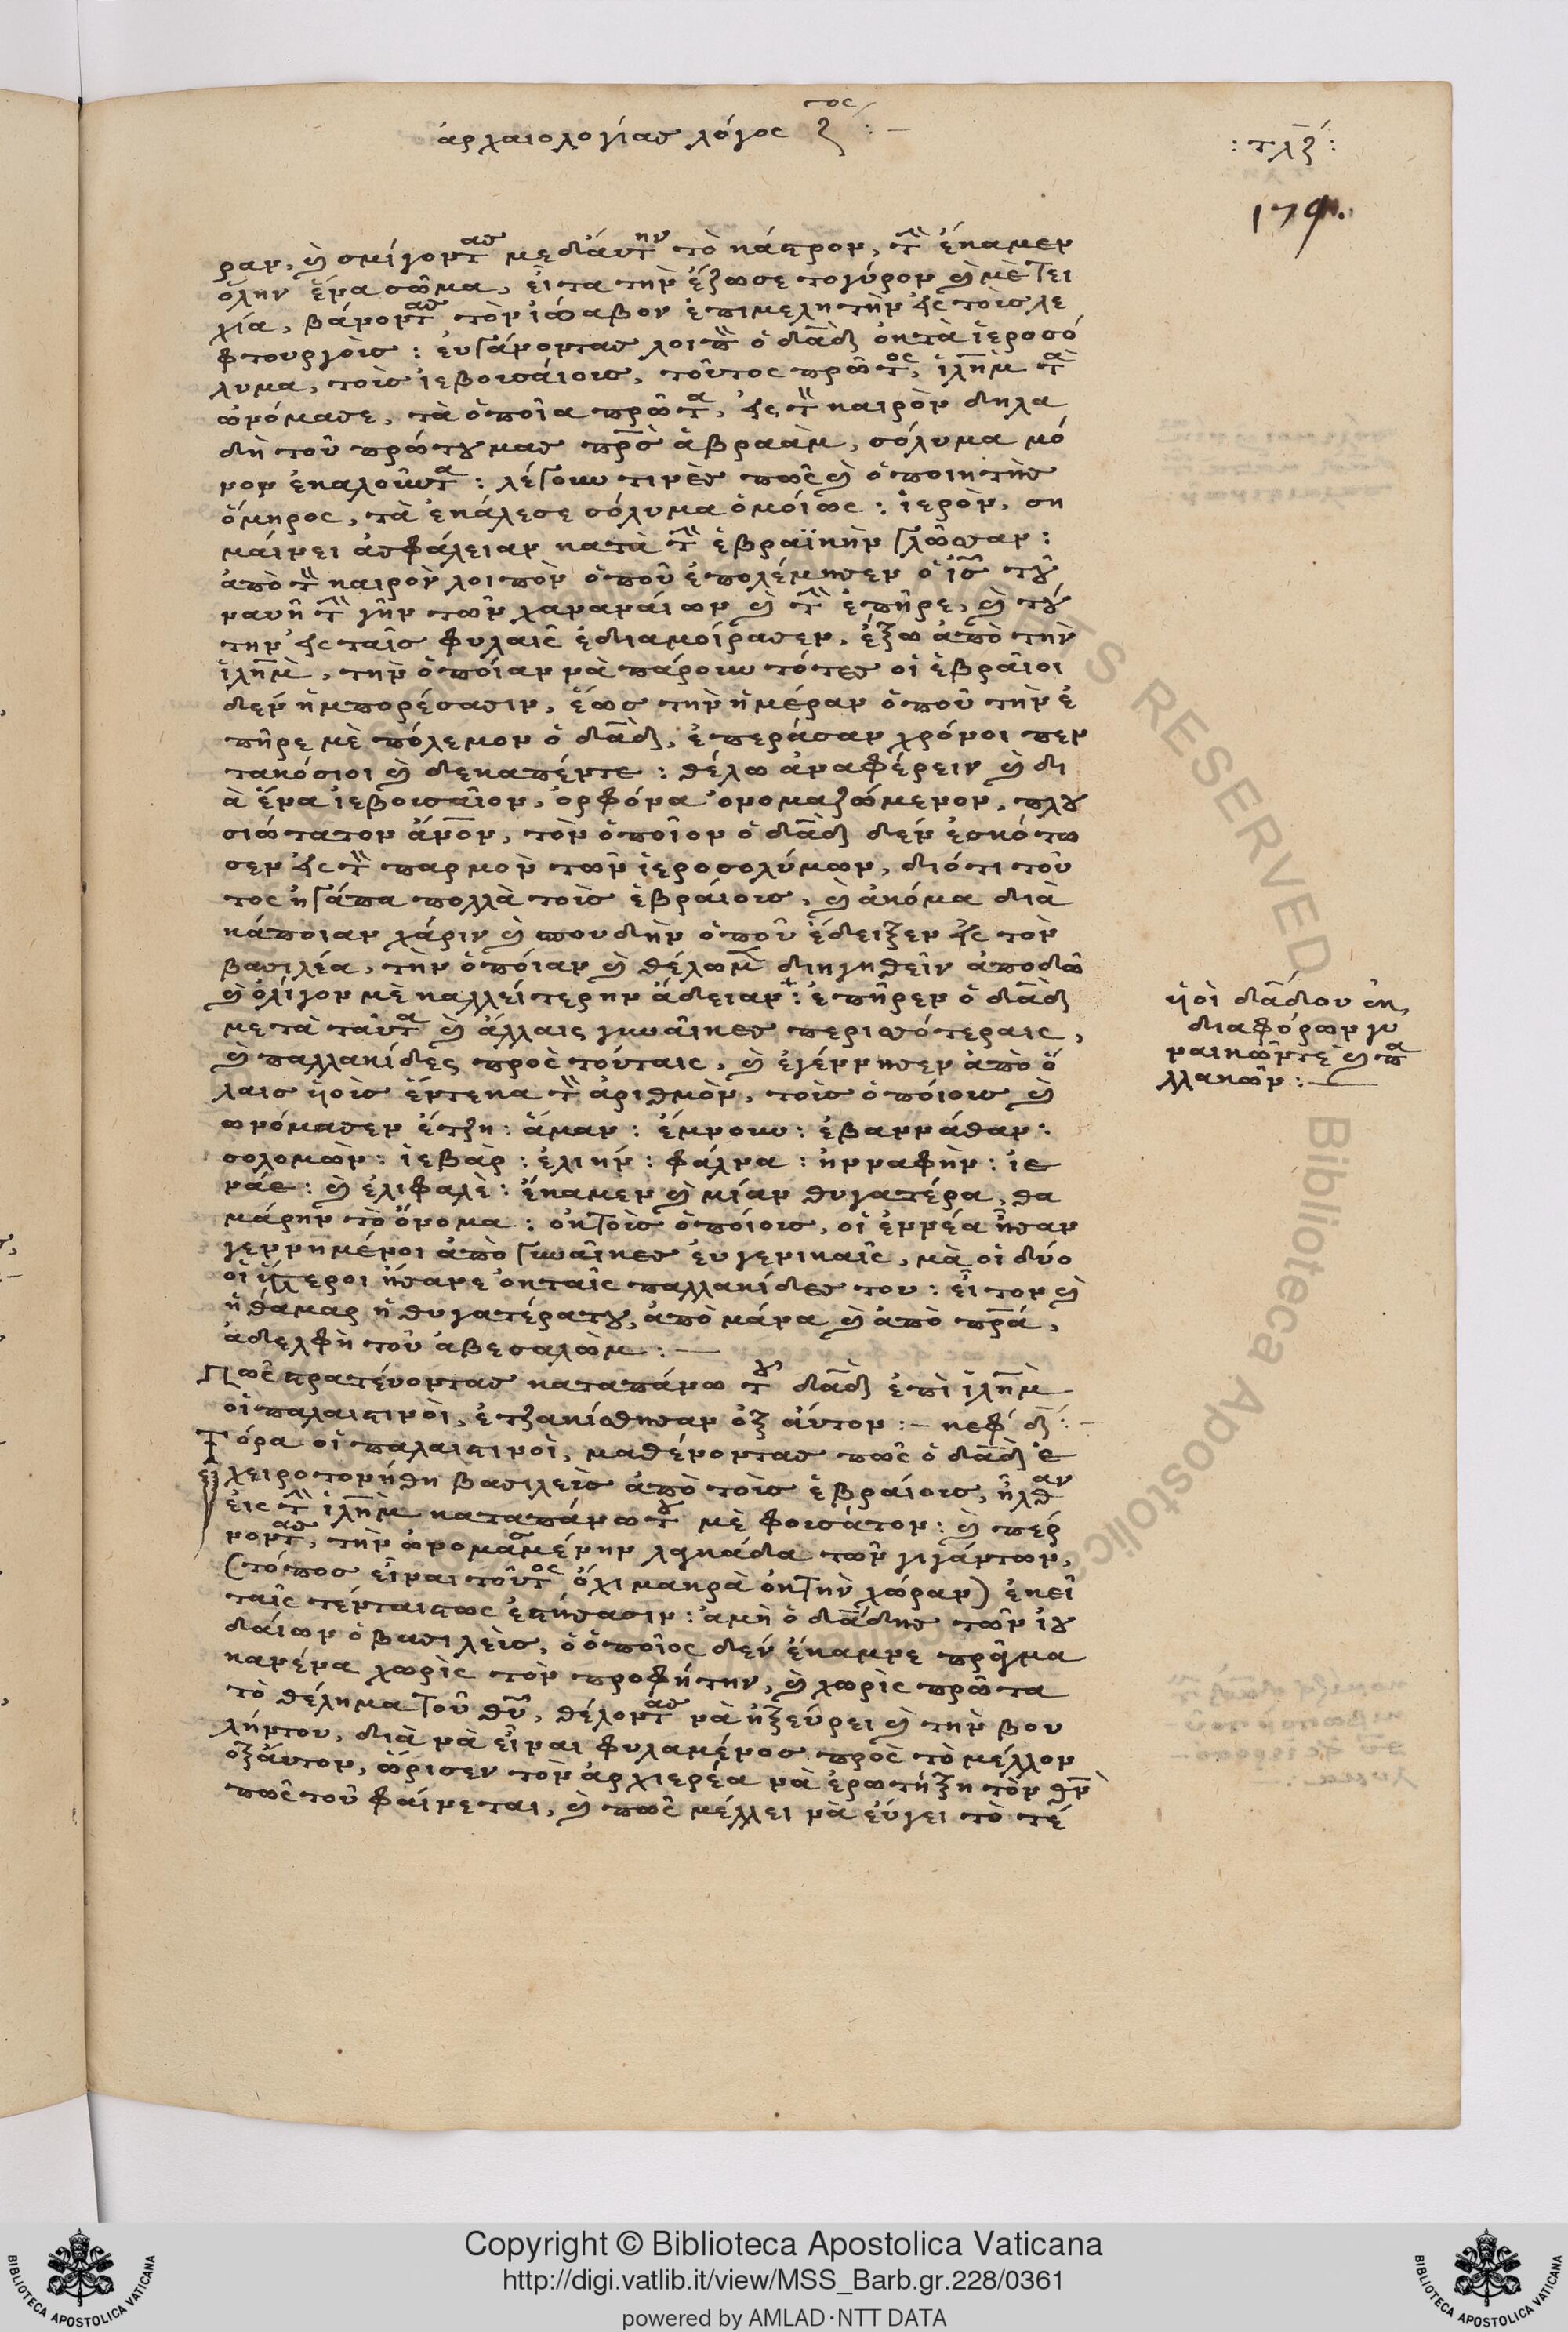 ἀρχαιολογίας λόγος ζ τος :—
: τλζ :
179.
ραν, καὶ σμίγοντας με δαύτην τὸ κάστρον, τὴν ἔκαμεν
ὅλην ἕνα σῶμα, εἶτα τὴν ἔζωσε τογύρον καὶ μὲ τει
χία, βάνοντας τὸν ἰώαβον ἐπιμελητὴν εἰς τοῖς λε
φτουργοῖς : εὐγάνοντας λοιπὸν ὁ δαδ ὀκτὰ ἱεροσό
λυμα, τοῖς ἰεβουσάιοις, τοῦτος πρῶτος, ἱλημ τὰ
ὠνόμασε, τὰ ὁποῖα πρῶτα, εἰς τὸν καιρὸν δηλα
δὴ τοῦ πρώτου μας πρσ ἀβραὰμ, σόλυμα μό
νον ἐκαλοῦντα : λέγουν τινὲς πῶς καὶ ὁ ποιητὴς
ὅμηρος, τὰ ἐκάλεσε σόλυμα ὁμοίως : ἱερὸν, ση
μαίνει ἀσφάλειαν κατὰ τὴν ἑβραϊκὴν γλῶσαν :
ἀπὸ τὸν καιρὸν λοιπὸν ὁποῦ ἐπολέμησεν ὁ ισ τοῦ
ναυῆ τὴν γῆν τῶν χανανάιων καὶ τὴν ἐπῆρε, καὶ τού
την εἰς ταῖς φυλαῖς ἐδιαμοίρασεν, ἔξω ἀπὸ τὴν
ἱλημ, τὴν ὁποίαν νὰ πάρουν τότες οἱ ἑβραῖοι
δὲν ἠμπορέσασιν, ἕως τὴν ἡμέραν ὁποῦ τὴν ἐ
πῆρε μὲ πόλεμον ὁ δαδ, ἐπεράσαν χρόνοι πεν
τακόσιοι καὶ δεκαπέντε : θέλω ἀναφέρειν καὶ δι
ὰ ἕνα ἰεβουσαῖον, ὀρφόνα ὀνομαζώμενον, πλου
σιώτατον ἄνον, τὸν ὁποῖον ὁ δαδ δὲν ἐσκότω
σεν εἰς τὸν παρμὸν τῶν ἱεροσολύμων, διότι τοῦ
τος ἠγάπα πολλὰ τοῖς ἑβραίοις, καὶ ἀκόμα διὰ
κάποιαν χάριν καὶ σπουδὴν ὁποῦ ἔδειξεν εἰς τὸν
βασιλέα, τὴν ὁποίαν καὶ θέλωμεν διηγηθεῖν ἀποδῶ
καὶ ὀλίγον μὲ καλλείτερην ἄδειαν : ἐπῆρεν ὁ δαδ
μετὰ ταῦτα καὶ ἄλλαις γυναῖκες περισότεραις,
καὶ παλλακίδες πρὸς τούταις, καὶ ἐγέννησεν ἀπὸ ὅ
λαις ὑοὶς ἕντεκα τὸν ἀριθμὸν, τοῖς ὁποίοις καὶ
ὠνόμασεν ἔτζη : ἄμαν : ἔμνουν : ἐβαννάθαν :
σολομὼν : ἰεβὰρ : ἐλιήν : φάλνα : ἠνναφὴν : ἰε
νάε : καὶ ἐλιφαλὲ : ἔκαμεν καὶ μίαν θυγατέρα, θα
μάρην τὸ ὄνομα : ὀκ τοῖς ὁποίοις, οἱ ἐννέα ἦσαν
γεννημένοι ἀπὸ γυναῖκες εὐγενικαῖς, μὰ οἱ δύο
οἱ ὕστεροι ἦσανε ὀκταῖς παλλακίδες του : εἶτον καὶ
ἡ θάμαρ ἡ θυγατέρατου, ἀπὸ μάνα καὶ ἀπὸ πρα,
ἀδελφὴ τοῦ ἀβεσαλὼμ :—
Πῶς στρατεύοντας καταπάνω τοῦ δαδ ἐπὶ ἱλημ
οἱ παλαιστινοὶ, ἐτζακίσθησαν ὀξ αὐτον :— κεφ δ :—
Τόρα οἱ παλαιστινοὶ, μαθένοντας πῶς ὁ δαδ ἐ
χειροτονήθη βασιλεὺς ἀπὸ τοῖς ἑβραίοις, ἦλθαν
εἰς τὴν ἱλημ καταπάνω του μὲ φουσάτον : καὶ περ
νοντας, τὴν ὠνομασμένην λακκάδα τῶν γιγάντων,
(τόπος εἶναι τοῦτος ὄχι μακρὰ ὀκ τὴν χώραν) ἐκεῖ
ταῖς τένταις τως ἐστήσασιν : ἀμὴ ὁ δαδης τῶν ἰου
δαίων ὁ βασιλεὺς, ὁ ὁποῖος δὲν ἔκαμνε πρᾶγμα
κανένα χωρὶς τὸν προφήτην, καὶ χωρὶς πρῶτα
τὸ θέλημα τοῦ θυ, θέλοντας νὰ ἠξεύρει καὶ τὴν βου
λήντου, διὰ νὰ εἶναι φυλαμένος πρὸς τὸ μέλλον
ὀξάυτον, ὥρισεν τὸν ἀρχιερέα νὰ ἐρωτήξη τὸν θν
πῶς τοῦ φαίνεται, καὶ πῶς μέλλει νὰ εὔγει τὸ τέ
ὑοὶ δαδου ἐκ
διαφόρων γυ
ναικῶντε καὶ πα
λλακῶν :—
ALL RIGHTS RESERVED
Biblioteca Apostolica
Copyright © Biblioteca Apostolica Vaticana
http://digi.vatlib.it/view/MSS_Barb.gr.228/0361
powered by AMLAD·NTT DATA
BIBLIOTECA APOSTOLICA VATICANA
BIBLIOTECA APOSTOLICA VATICANA